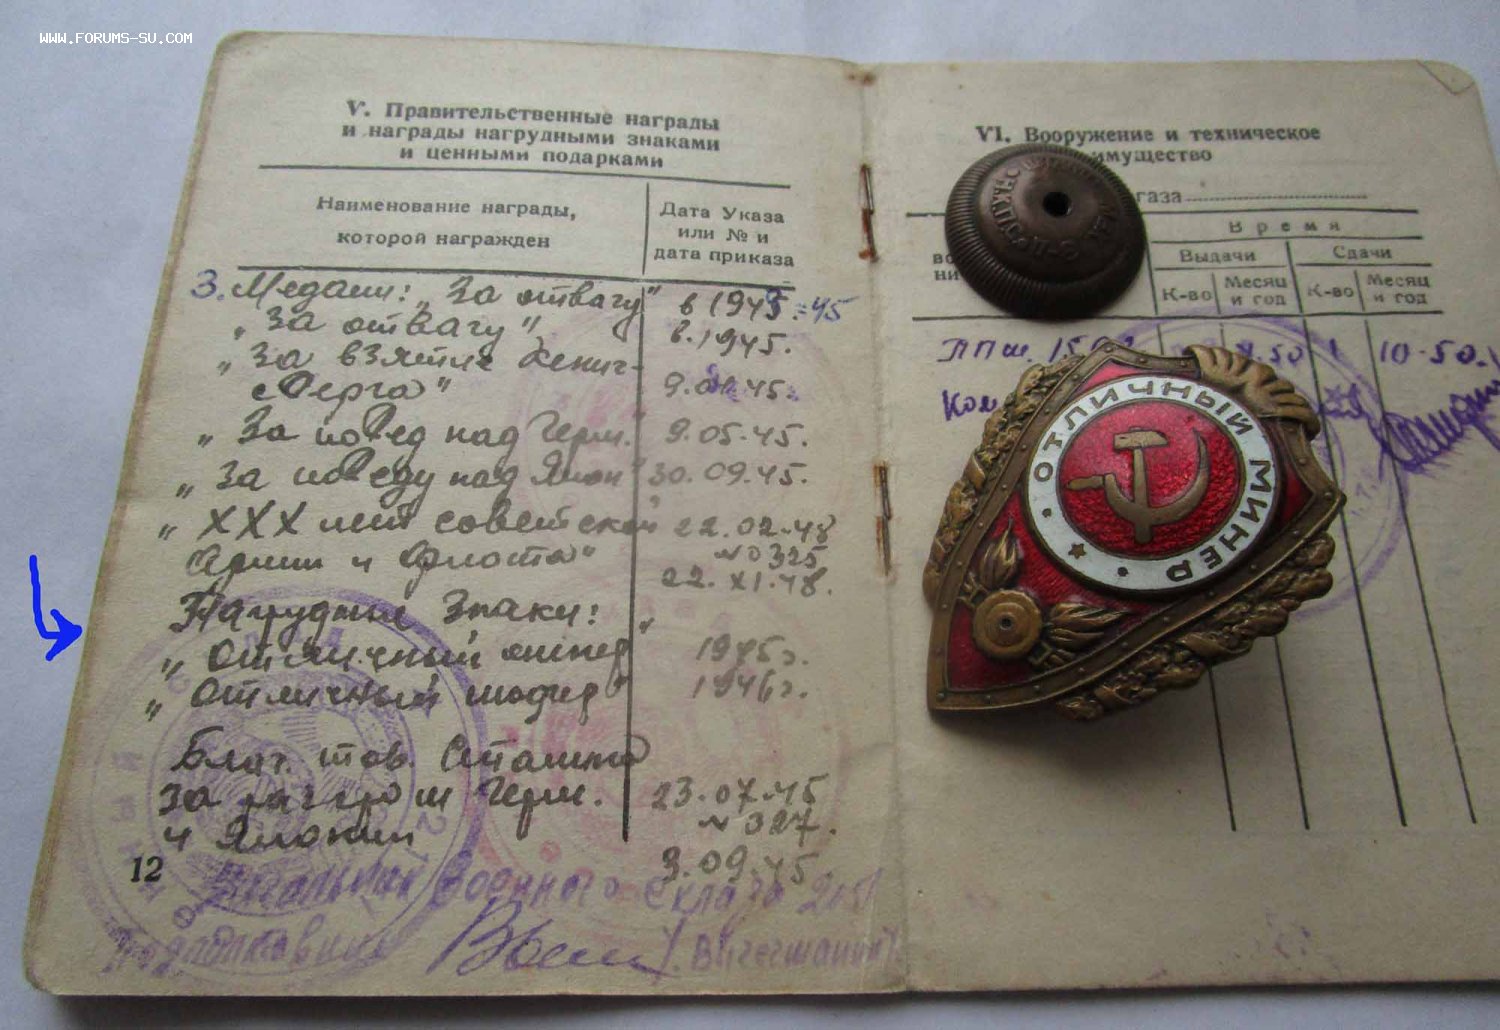 WWW.FORUMS-SU.COM
V. Правительственные награды
и награды нагрудными знаками
и ценными подарками
Наименование награды,
которой награжден
Дата Указа
или № и
дата приказа
3. Медали: „За отвагу" в 1945.=45
„За отвагу" в.1945.
„За взятие Кениг-
сберга" 9.04.45.
„За побед над Герм." 9.05.45.
„За победу над Япон" 30.09.45.
„XXX лет советской 22.02.48
Армии и Флота" №0325
22.XI.48.
Нагрудные знаки:
„Отличный минер" 1945г.
„Отличный шофер" 1946г.
Благ. тов. Сталина
за разгром Герм. 23.07.45
и Японии №327.
3.09.45.
12
Начальник Военного Склада
Подполковник
VI. Вооружение и техническое
имущество
газа
Время
Выдачи
Сдачи
К-во
Месяц
и год
К-во
Месяц
и год
ППШ. 50 1 10-50.
ОТЛИЧНЫЙ МИНЕР